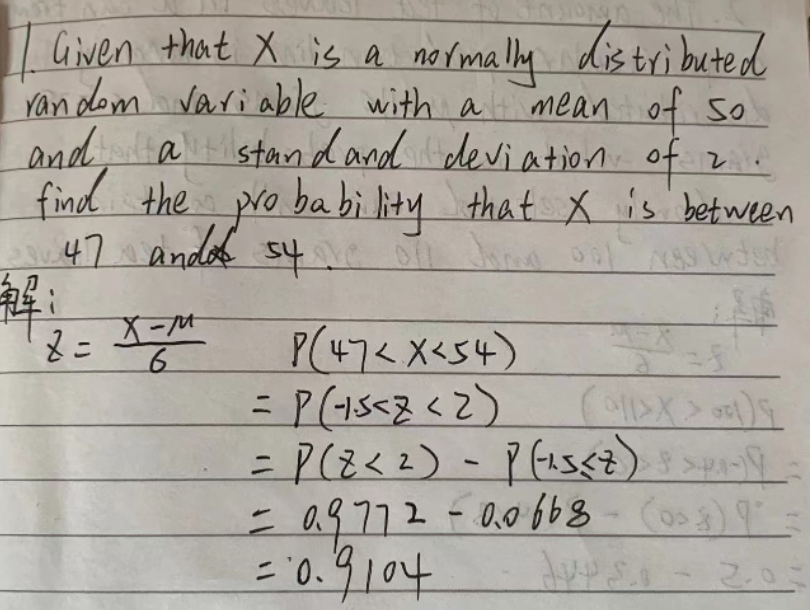 1. Given that X is a normally distributed
random variable with a mean of 50
and a standand deviation of 2.
find the probability that X is between
47 and 54.
解:
z = (X-μ)/6 P(47<X<54)
= P(-1.5<z<2)
= P(z<2) - P(-1.5≤z)
= 0.9772 - 0.0668
= 0.9104